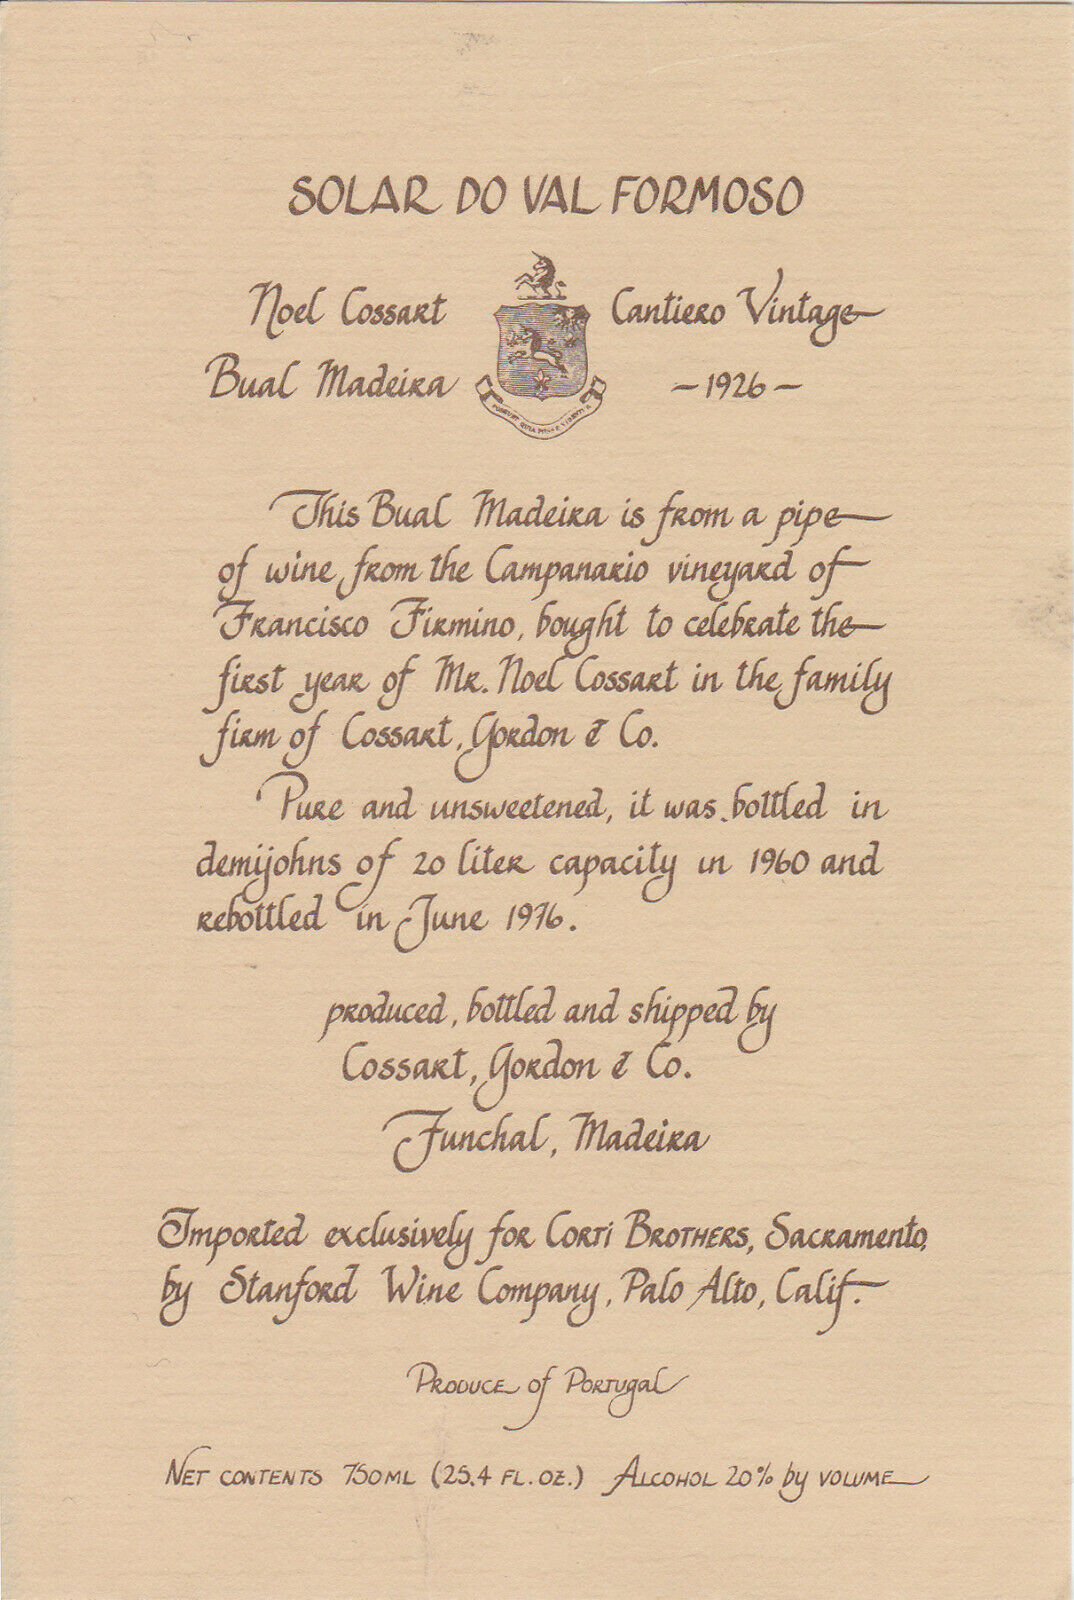 SOLAR DO VAL FORMOSO
Noel Cossart Cantiero Vintage
Bual Madeira – 1926 –
This Bual Madeira is from a pipe
of wine from the Campanario vineyard of
Francisco Firmino, bought to celebrate the
first year of Mr. Noel Cossart in the family
firm of Cossart, Gordon & Co.
Pure and unsweetened, it was bottled in
demijohns of 20 liter capacity in 1960 and
rebottled in June 1976.
produced, bottled and shipped by
Cossart, Gordon & Co.
Funchal, Madeira
Imported exclusively for CORTI BROTHERS, Sacramento,
by Stanford Wine Company, Palo Alto, Calif.
PRODUCE of PORTUGAL
NET CONTENTS 750ML (25.4 FL. OZ.) ALCOHOL 20% by VOLUME